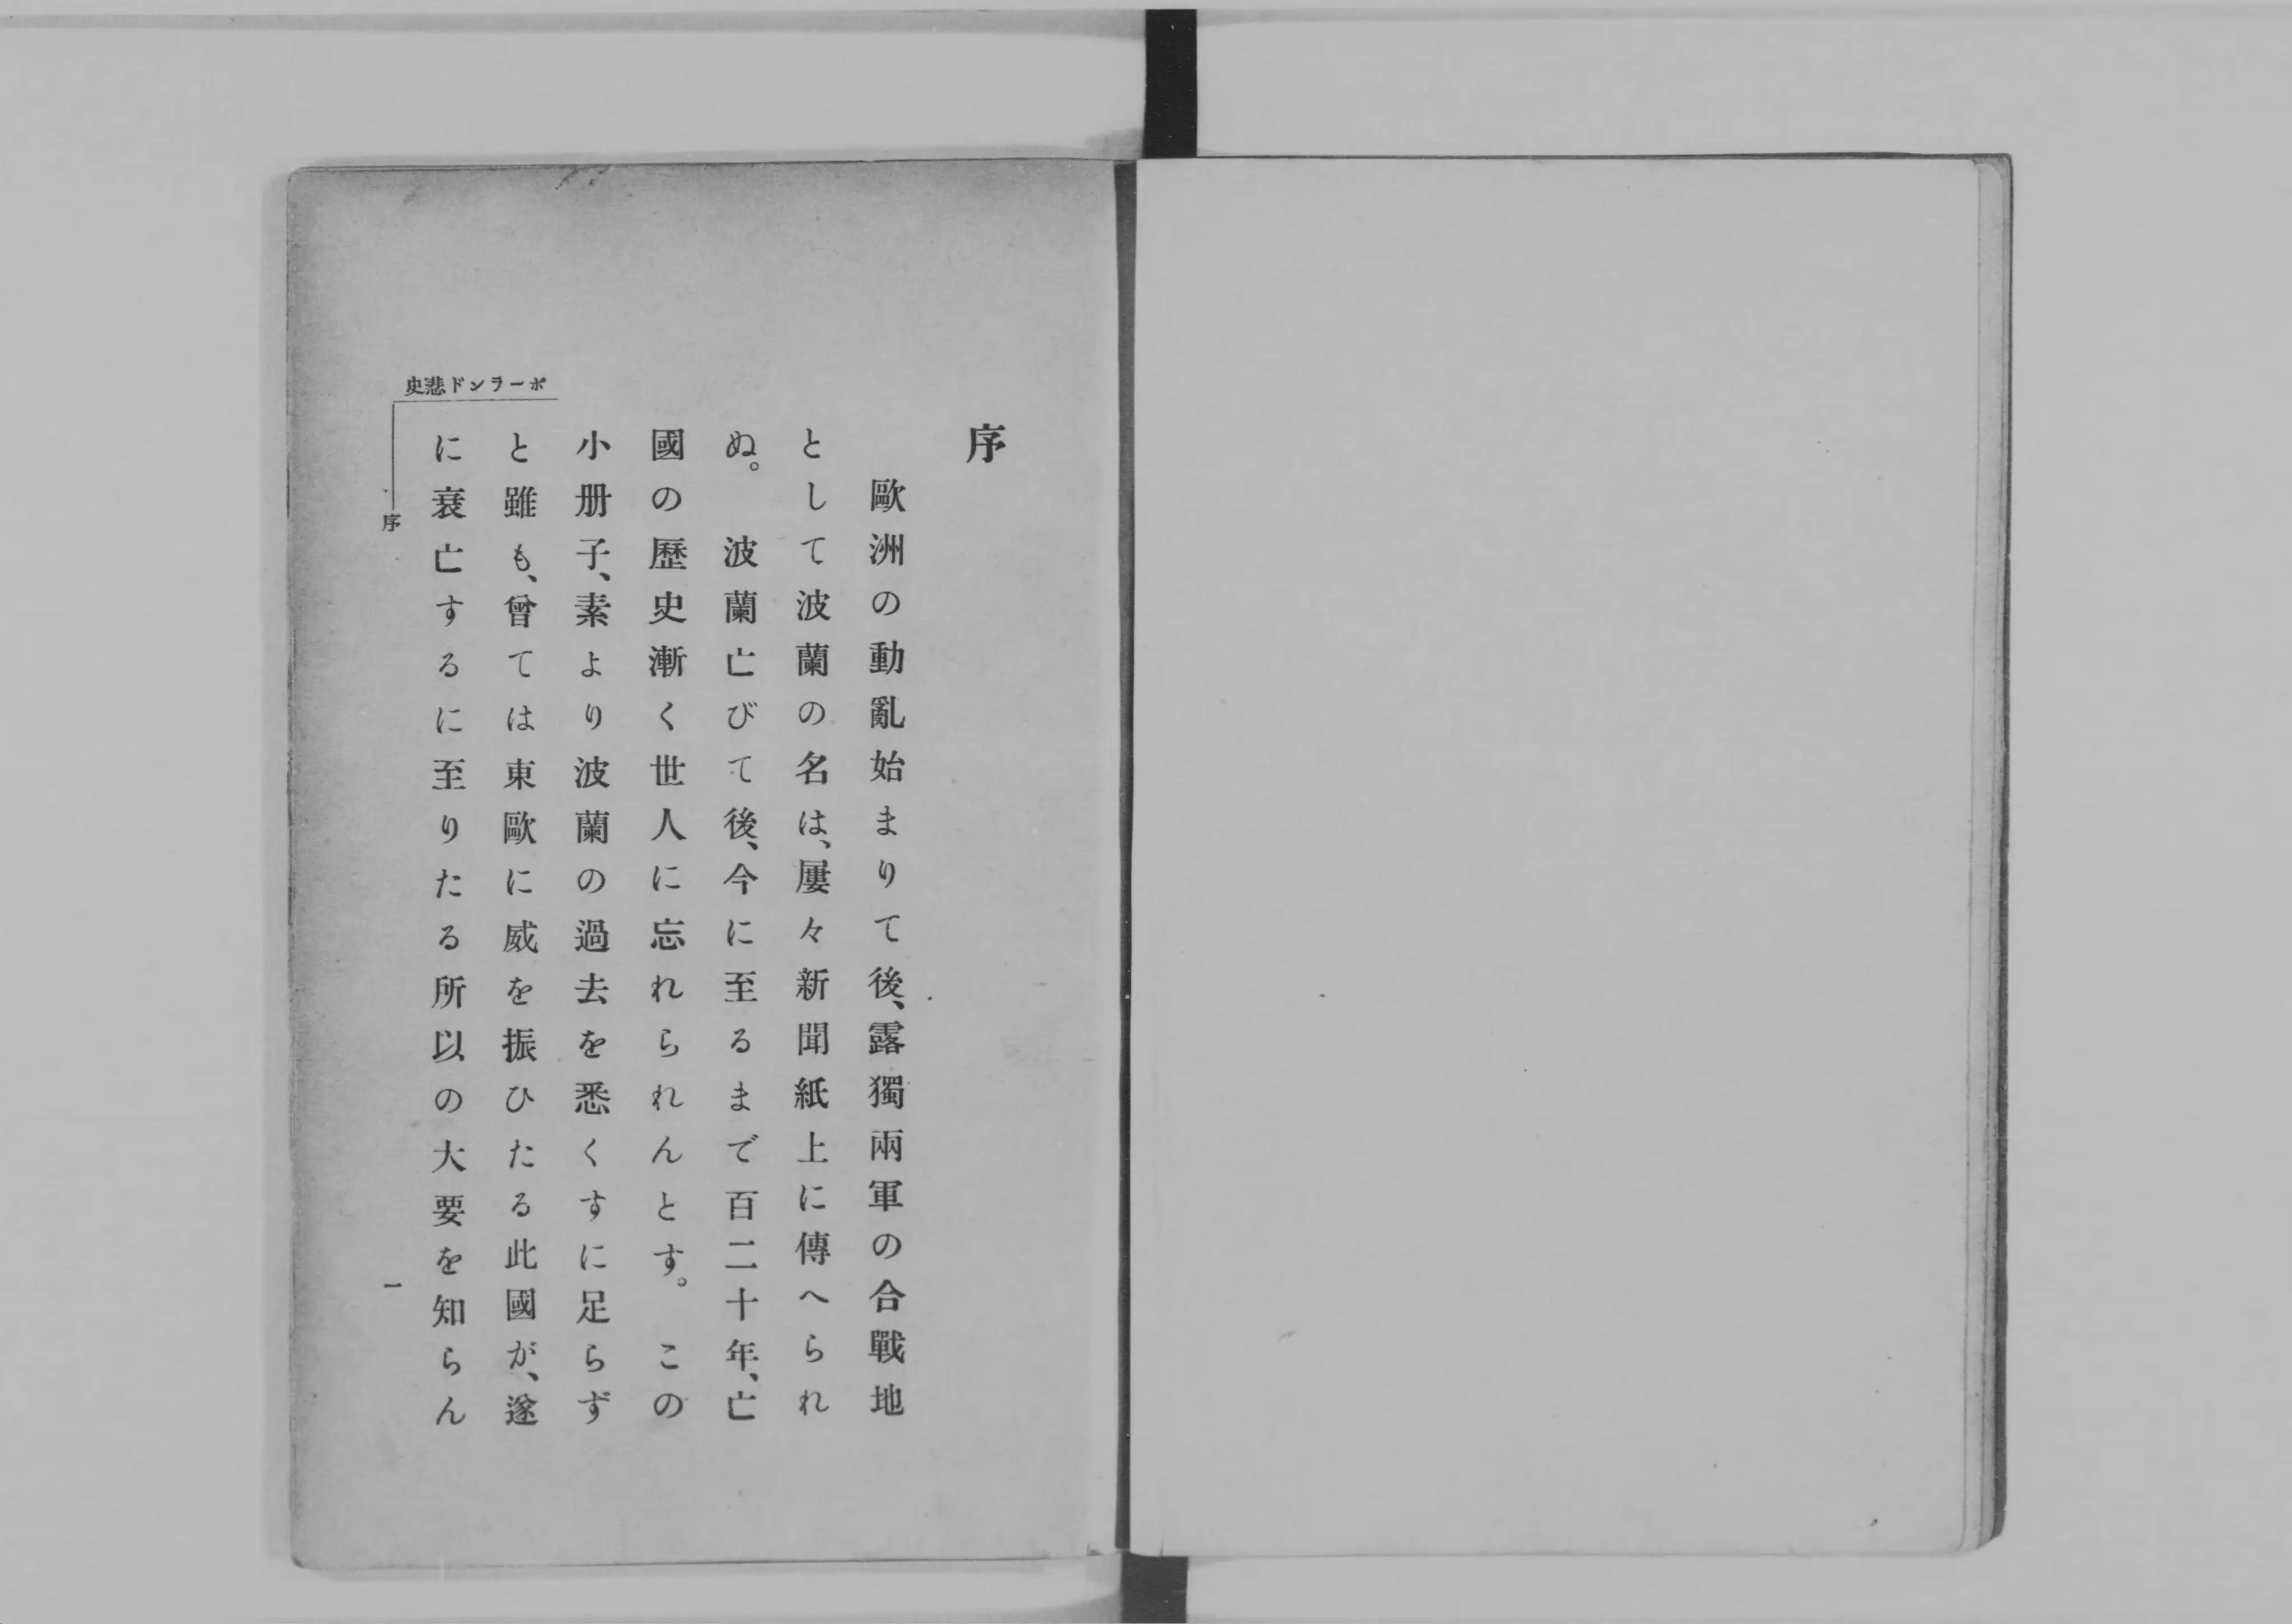 序
歐洲の動亂始まりて後、露獨兩軍の合戰地
として波蘭の名は、屢々新聞紙上に傳へられ
ぬ。　波蘭亡びて後、今に至るまで百二十年、亡
國の歷史漸く世人に忘れられんとす。　この
小册子、素より波蘭の過去を悉くすに足らず
と雖も、曾ては東歐に威を振ひたる此國が、遂
に衰亡するに至りたる所以の大要を知らん
ポーランド悲史
序
一